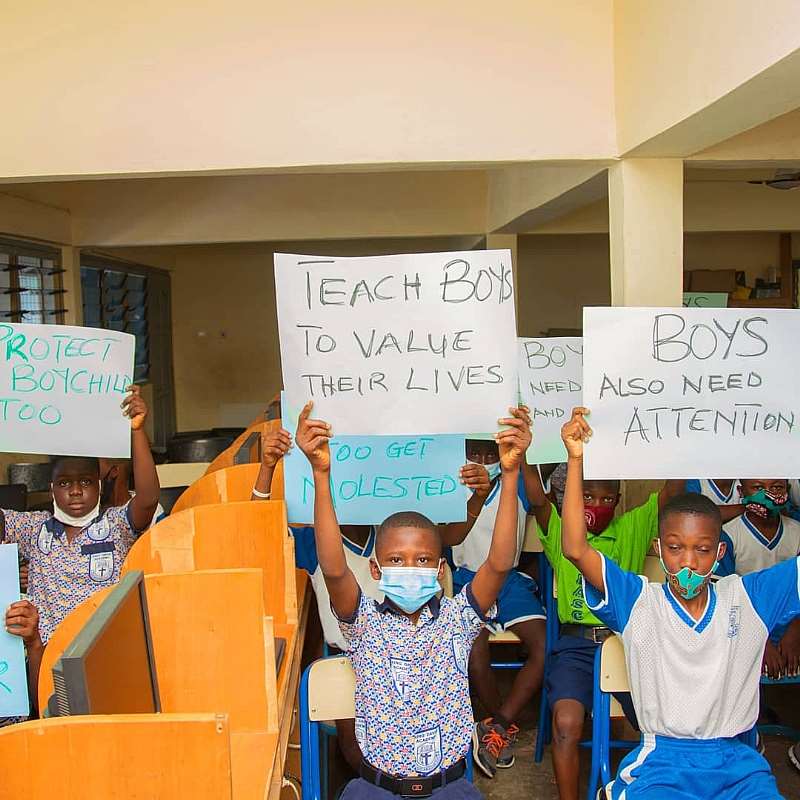 PROTECT
BOYCHILD
TOO
TEACH BOYS
TO VALUE
THEIR LIVES
TOO GET
MOLESTED
BOY
NEED
AND
BOYS
ALSO NEED
ATTENTION
R